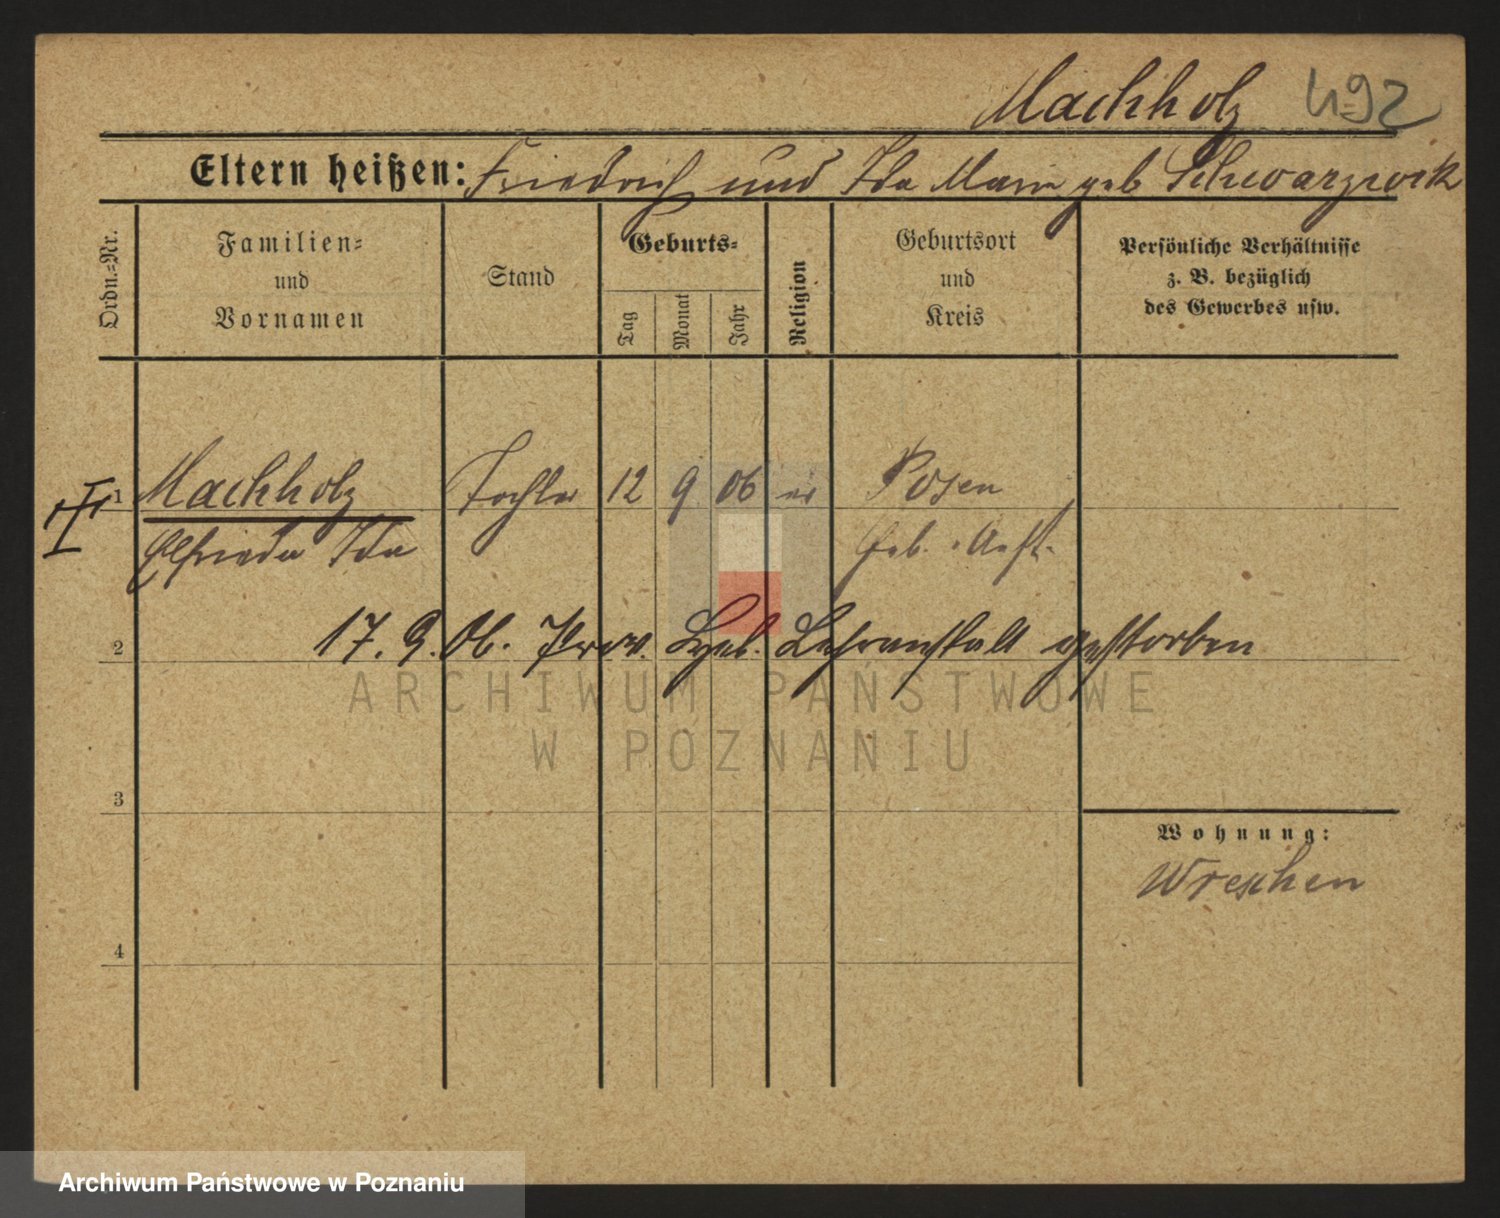 Machholz 492
Eltern heißen: Friedrich und Ida Marie geb Schwarzwik
Ordn.=Nr.
Familien=
und
Vornamen
Stand
Geburts=
Tag
Monat
Jahr
Religion
Geburtsort
und
Kreis
Persönliche Verhältnisse
z. B. bezüglich
des Gewerbes usw.
1 Machholz Tochter 12 9 06 ev Posen
Elfriede Ida Geb. Anst.
2 17. 9. 06. Prov. Heb. Lehranstalt gestorben
ARCHIWUM PAŃSTWOWE
W POZNANIU
3
Wohnung:
Wreschen
4
Archiwum Państwowe w Poznaniu